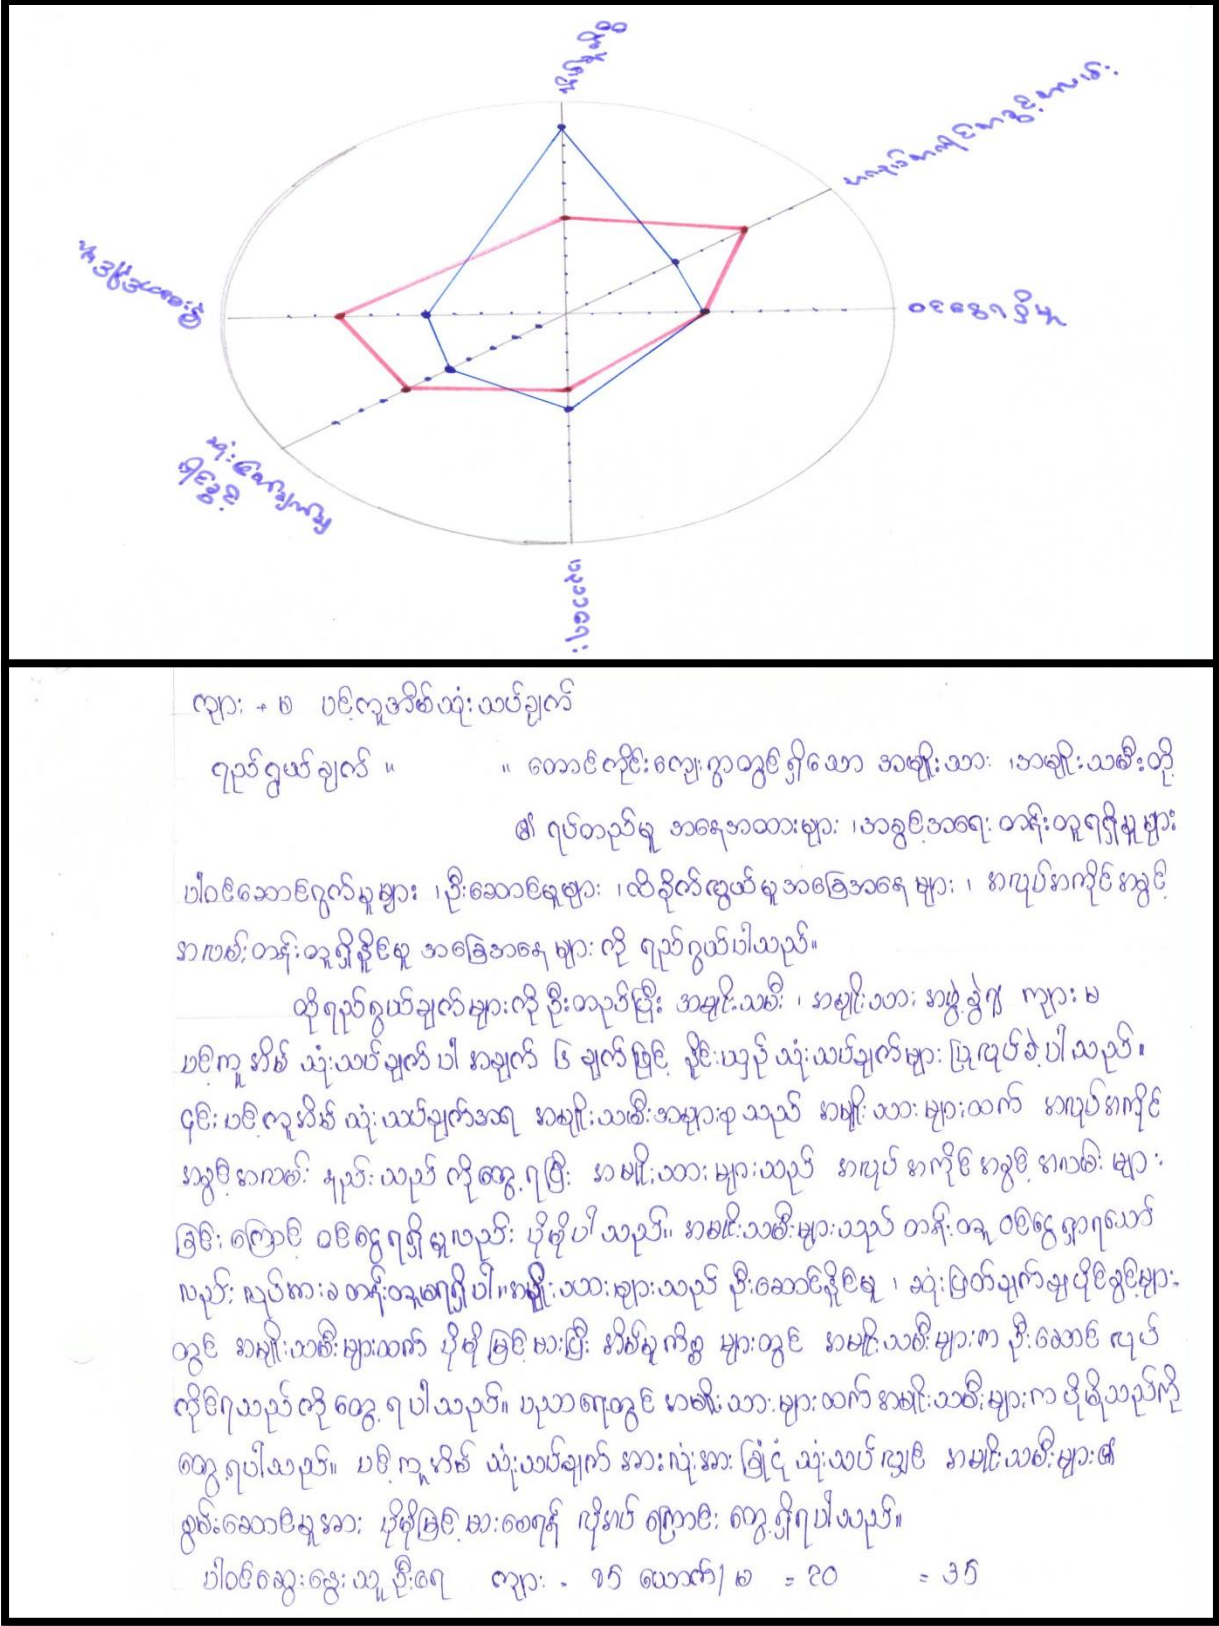 အိမ်မှုကိစ္စ
အလုပ်အကိုင်အခွင့်အလမ်း
ဝင်ငွေရရှိမှု
ပညာရေး
ဆုံးဖြတ်ချက်ချ
ပိုင်ခွင့်
ဦးဆောင်နိုင်မှု
ကျား + မ ပင့်ကူအိမ်သုံးသပ်ချက်
ရည်ရွယ်ချက် ။ ။ တောင်ကိုင်းကျေးရွာတွင်ရှိသော အမျိုးသား ၊အမျိုးသမီးတို့
၏ ရပ်တည်မှု အနေအထားများ ၊အခွင့်အရေး တန်းတူရရှိမှုများ
ပါဝင်ဆောင်ရွက်မှုများ ၊ဦးဆောင်မှုများ ၊ အခြေအနေများ ၊ အလုပ်အကိုင်အခွင့်
အလမ်းတန်းတူရှိနိုင်မှု အခြေအနေများကို ရည်ရွယ်ပါသည်။
ထိုရည်ရွယ်ချက်များကို ဦးတည်ပြီး အမျိုးသမီး ၊ အမျိုးသား အဖွဲ့ခွဲ၍ ကျား မ
ပင့်ကူအိမ် သုံးသပ်ချက်ပါ အချက် ၆ ချက်ဖြင့် နှိုင်းယှဉ် သုံးသပ်ချက်များ ပြုလုပ်ခဲ့ပါသည်။
၎င်းပင့်ကူအိမ် သုံးသပ်ချက်အရ အမျိုးသမီးအများစုသည် အမျိုးသားများထက် အလုပ်အကိုင်
အခွင့်အလမ်း နည်းသည်ကိုတွေ့ရပြီး အမျိုးသားများသည် အလုပ်အကိုင်အခွင့်အလမ်းများ
ခြင်းကြောင့် ဝင်ငွေရရှိမှုလည်း ပိုမိုပါသည်။ အမျိုးသမီးများသည် တန်းတူ ဝင်ငွေရှာရသော်
လည်း လုပ်အားခ တန်းတူမရရှိပါ။ အမျိုးသားများသည် ဦးဆောင်နိုင်မှု ၊ ဆုံးဖြတ်ချက်ချပိုင်ခွင့်များ
တွင် အမျိုးသမီးများထက် ပိုမိုမြင့်မားပြီး အိမ်မှုကိစ္စများတွင် အမျိုးသမီးများက ဦးဆောင်လုပ်
ကိုင်ရသည်ကိုတွေ့ရပါသည်။ ပညာရေးတွင် အမျိုးသားများထက် အမျိုးသမီးများက ပိုမိုသည်ကို
တွေ့ရပါသည်။ ပင့်ကူအိမ် သုံးသပ်ချက် အားလုံးအား ခြုံငုံ သုံးသပ်လျှင် အမျိုးသမီးများ၏
စွမ်းဆောင်မှုအား ပိုမိုမြင့်မားစေရန် လိုအပ်ကြောင်း တွေ့ရှိရပါသည်။
ပါဝင်ဆွေးနွေးသူဦးရေ ကျား - 15 ယောက်/ မ = 20 = 35